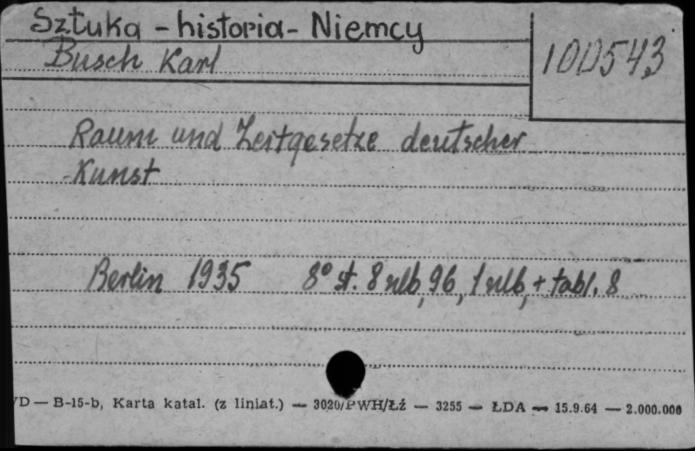 Sztuka - historia - Niemcy
Busch Karl
100543
Raum und Zeitgesetze deutscher
Kunst
Berlin 1935 8° st. 8 nlb, 96, 1 nlb, + tabl. 8
D — B-15-b, Karta katal. (z liniat.) — 3020/PWH/Łź — 3255 — ŁDA — 15.9.64 — 2.000.000